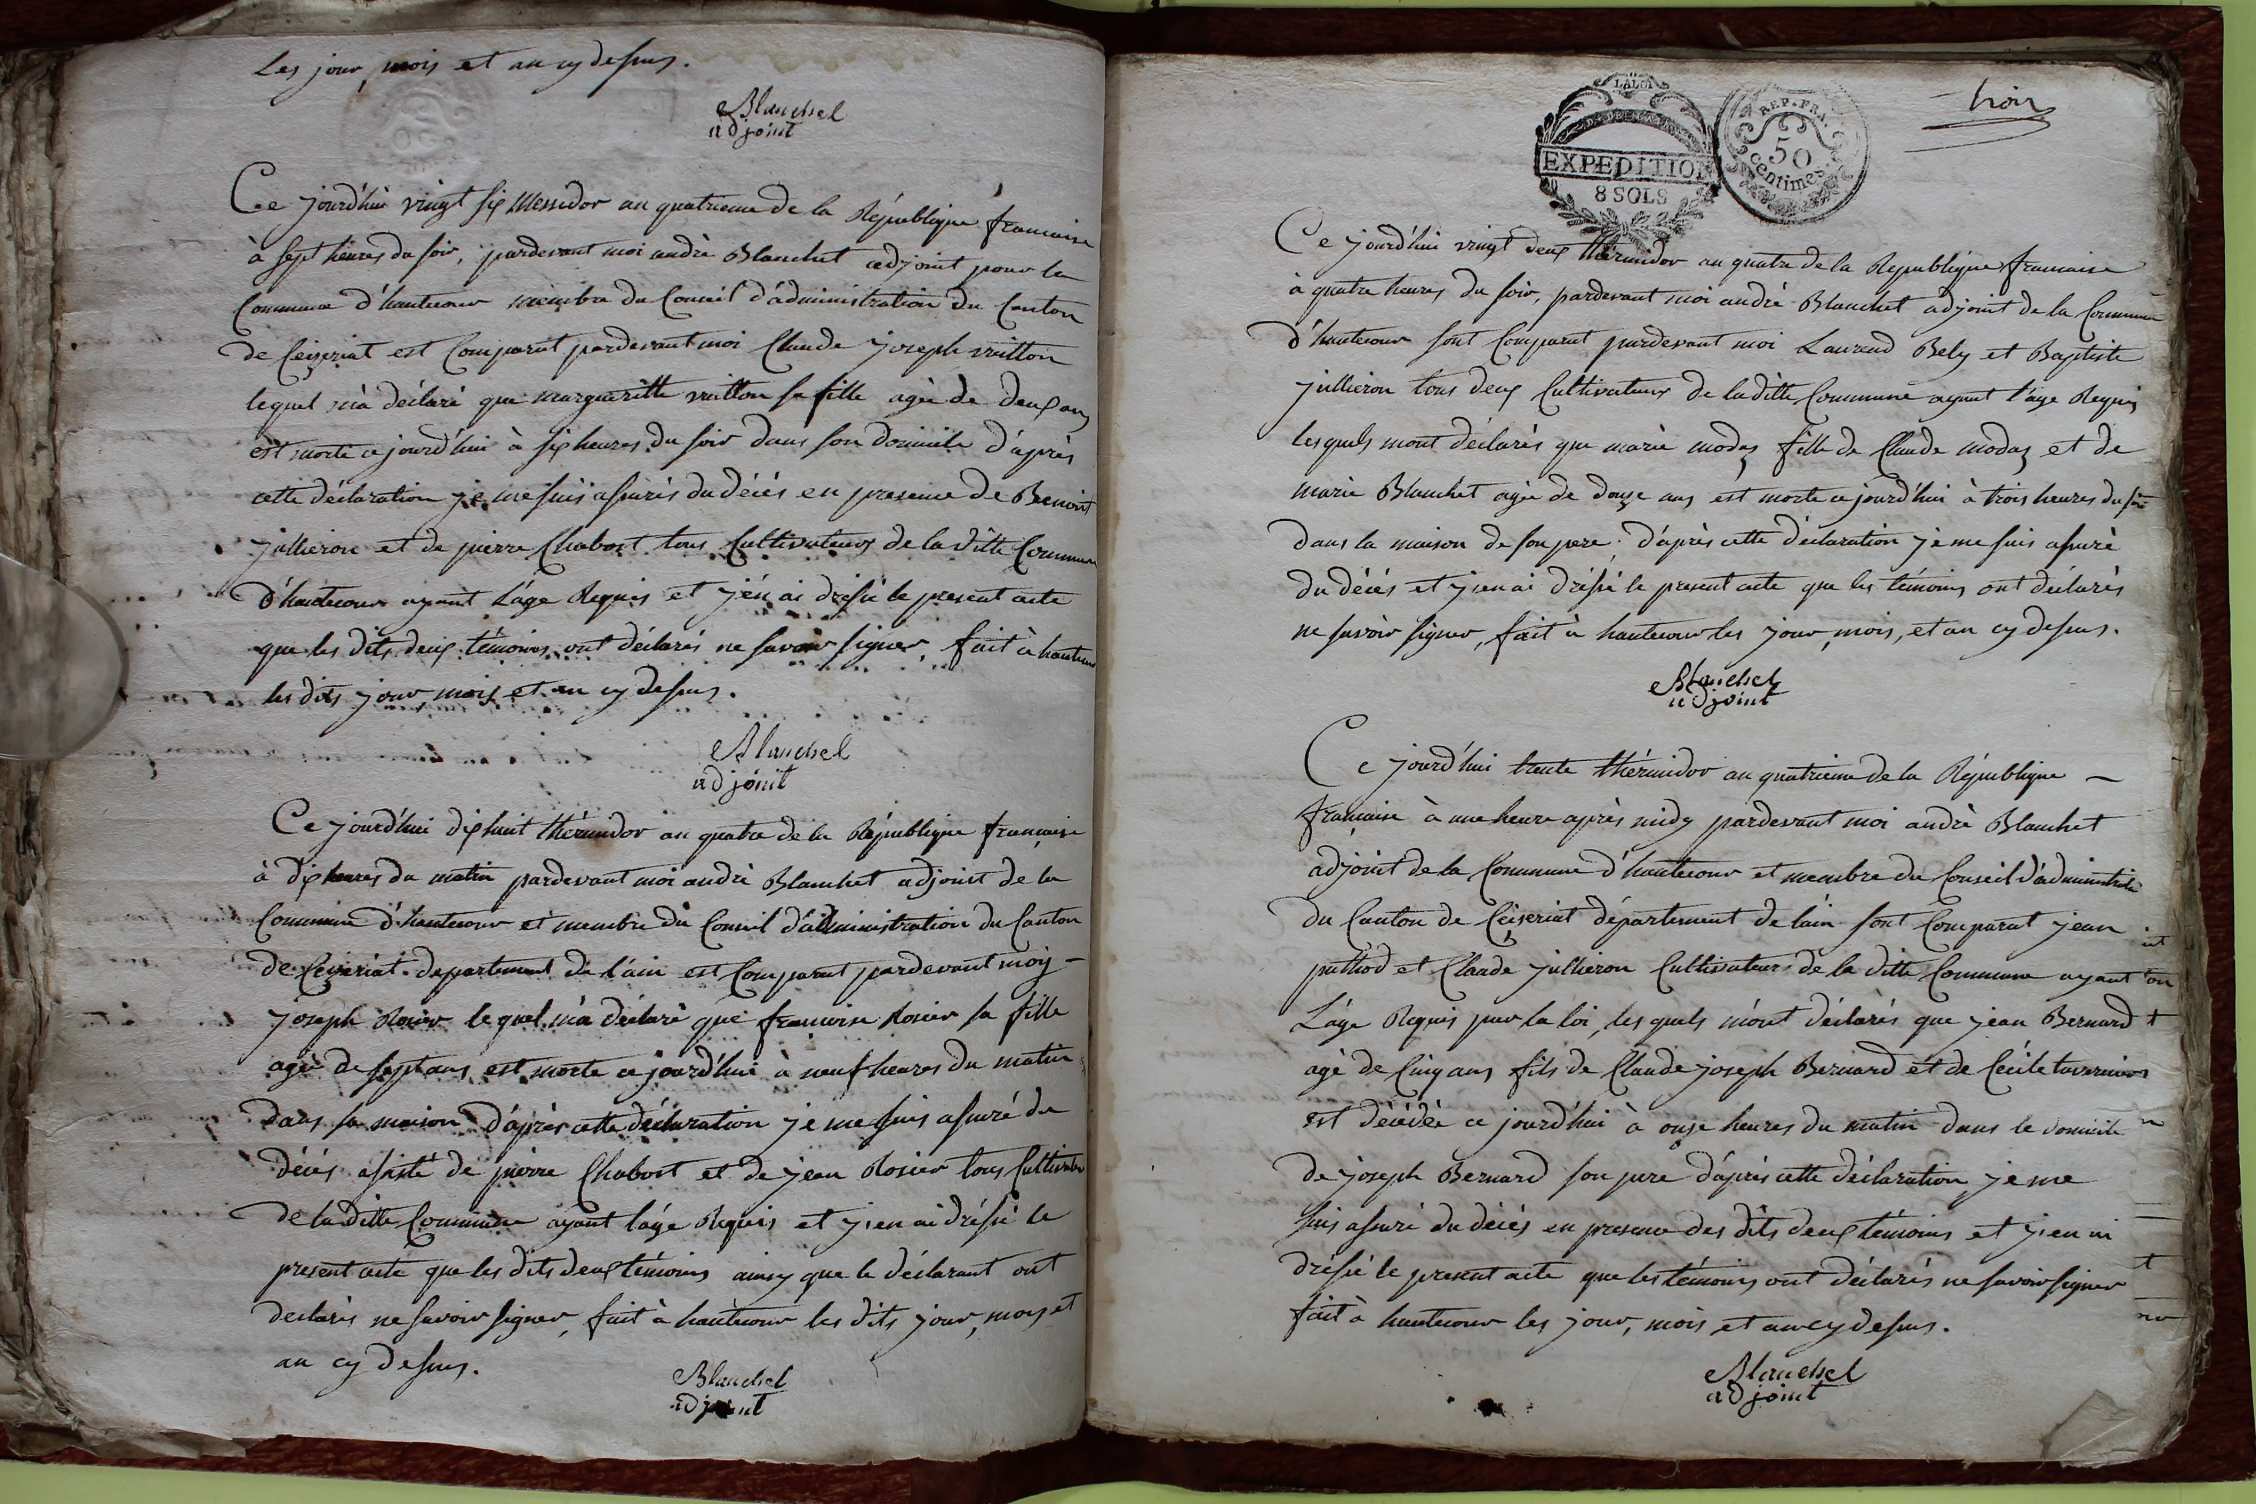 Les jour, mois et an cy dessus.
Blanchet
adjoint
Ce jourd'hui vingt six Messidor an quatrieme de la République francaise
à sept heures du soir, pardevant moi andrè Blanchet adjoint pour la
Commune d'hautecour membre du Conseil d'administration du Canton
de Ceizeriat est Comparut pardevant moi Claude joseph vuitton
lequel m'à déclaré que margueritte vuitton sa fille agée de deux ans
est morte ce jourd'hui à six heures du soir dans son domicile d'après
cette déclaration je me suis assurés du décés en presence de Benoit
jullieron et de pierre Chabert tous Cultivateurs de la ditte Commune
d'hautecour ayant l'age Requis et j'én ai dréssé le present acte
que les dits deux témoins ont déclarés ne savoir signer, fait à hautecour
les dits jour mois et an cy dessus.
Blanchet
adjoint
Ce jourd'hui dixhuit thérmidor an quatre de la République française
à dix heures du matin pardevant moi andrè Blanchet adjoint de la
Commune d'hautecour et membre du Conseil d'administration du Canton
de Ceizeriat departement de l'ain est Comparut pardevant moy
joseph Rosier le quel m'à déclarè que francoise Rosier sa fille
agée de sept ans est morte ce jourd'hui à neuf heures du matin
dans sa maison d'après cette déclaration je me suis assuré du
décés assisté de pierre Chabert et de jean Rosier tous Cultivateurs
de la ditte Commune ayant l'age Requis et j'en ai dréssé le
present acte que les dits deux témoins ainsy que le déclarant ont
declarés ne savoir signer, fait à hautecour les dits jour, moys et
an cy dessus.
Blanchet
adjoint
LA LOI
EXPEDITION
8 SOLS
REP. FRA.
50
centimes
trois
Ce jourd'hui vingt deux thérmidor an quatre de la Republique francaise
à quatre heures du soir, pardevant moi andré Blanchet adjoint de la Commune
d'hautecour sont Comparut pardevant moi Laurend Bely et Baptiste
jullieron tous deux Cultivateurs de la ditte Commune ayant l'age Requis
lesquels mont déclarés que marie modas fille de Claude modas et de
marie Blanchet agée de douze ans est morte ce jourd'hui à trois heures du soir
dans la maison de son pere. d'après cette déclaration je me suis assuré
du décés et j'en ai dréssé le present acte que les témoins ont déclarés
ne savoir signer, fait à hautecour les jour, mois, et an cy dessus.
Blanchet
adjoint
Ce jourd'hui trente thérmidor an quatrieme de la République
francaise à une heure après midy pardevant moi andrè Blanchet
adjoint de la Commune d'hautecour et membre du Conseil d'administration
du Canton de Ceizeriat département de lain sont Comparut jean
puthod et Claude jullieron Cultivateurs de la ditte Commune ayant
L'age Requis par la loi, les quels m'ont déclarés que jean Bernard
agé de Cinq ans fils de Claude joseph Bernard et de Cécile tavernier
est décédée ce jourd'hui à onze heures du matin dans le domicile
de joseph Bernard son pere d'après cette déclaration je me
suis assuré du décés en presence des dits deux témoins et j'en ai
dréssé le present acte que les témoins ont déclarés ne savoir signer
fait à hautecour les jour, mois et an cy dessus.
Blanchet
adjoint